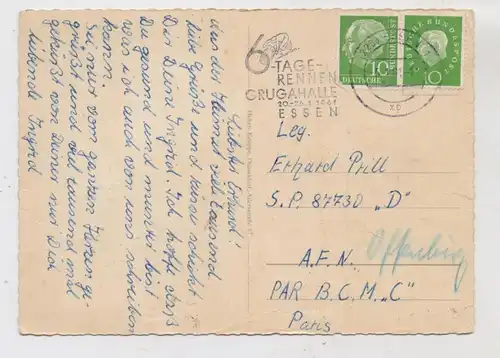 Liebster Erhard!
Aus der Heimat viel tausend
liebe Grüße und Küsse schickt
Dir Deine Ingrid. Ich hoffe daß
Du gesund und munter bist
was ich auch von uns schreiben
kann.
Sei nur vom ganzen Herzen ge-
grüßt und viel tausend mal
geküßt von Deiner nur Dich
liebende Ingrid
6 TAGE-
RENNEN
GRUGAHALLE
20.-26.1.1961
ESSEN
10
DEUTSCHE
BUNDESPOST
DEUTSCHE BUNDESPOST
10
xp
Leg.
Erhard Prill
S.P. 87730 „D"
A.F.N. Offenburg
PAR B.C.M. „C"
Paris